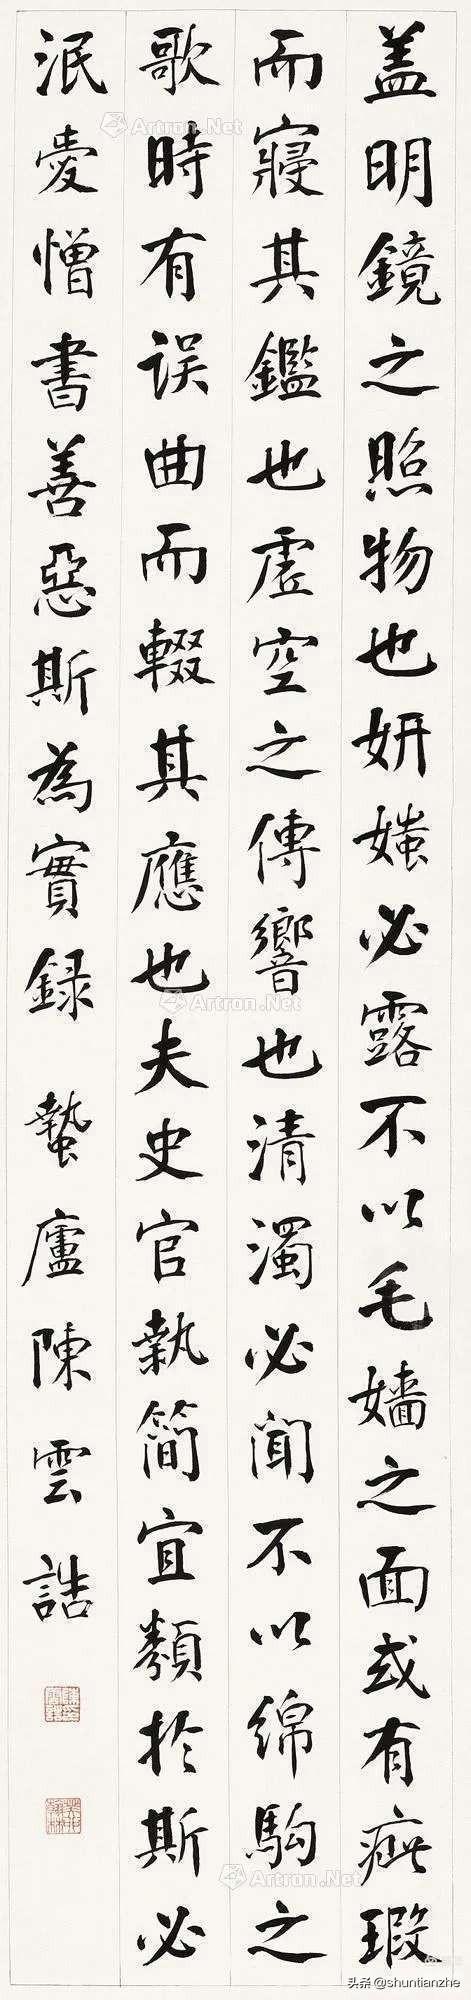 盖明鏡之照物也妍媸必露不以毛嬙之面或有疵瑕
而寢其鑑也虛空之傳響也清濁必聞不以綿駒之
歌時有误曲而輟其應也夫史官執簡宜類於斯必
泯愛憎書善惡斯為實録 蟄廬陳雲誥
Artron.Net
Artron.Net
Artron.Net
头条 @shuntianzhe